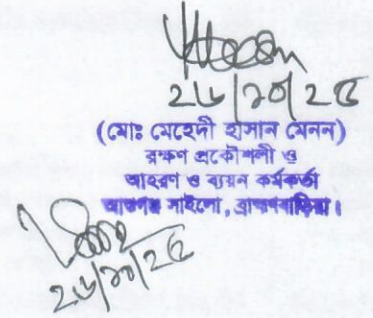 ২৬/১০/২৫
(মোঃ মেহেদী হাসান মেনন)
রক্ষণ প্রকৌশলী ও
আহরণ ও ব্যয়ন কর্মকর্তা
আশুগঞ্জ সাইলো, ব্রাহ্মণবাড়িয়া।
২৬/১০/২৫